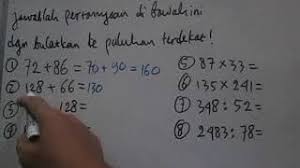 jawablah pertanyaan di bawah ini
dgn bulatkan ke puluhan terdekat!
① 72 + 86 = 70 + 90 = 160
② 128 + 66 = 130
128 =
⑤ 87 × 33 =
⑥ 135 × 241 =
⑦ 348 : 52 =
⑧ 2483 : 78 =